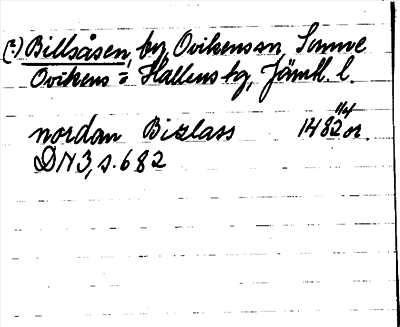 (?) Billsåsen, by, Ovikens sn, Sunne
Ovikens o Hallens tg, Jämtl. l.
nordan Bizlass 1482 11/4 or.
DN3, s. 682